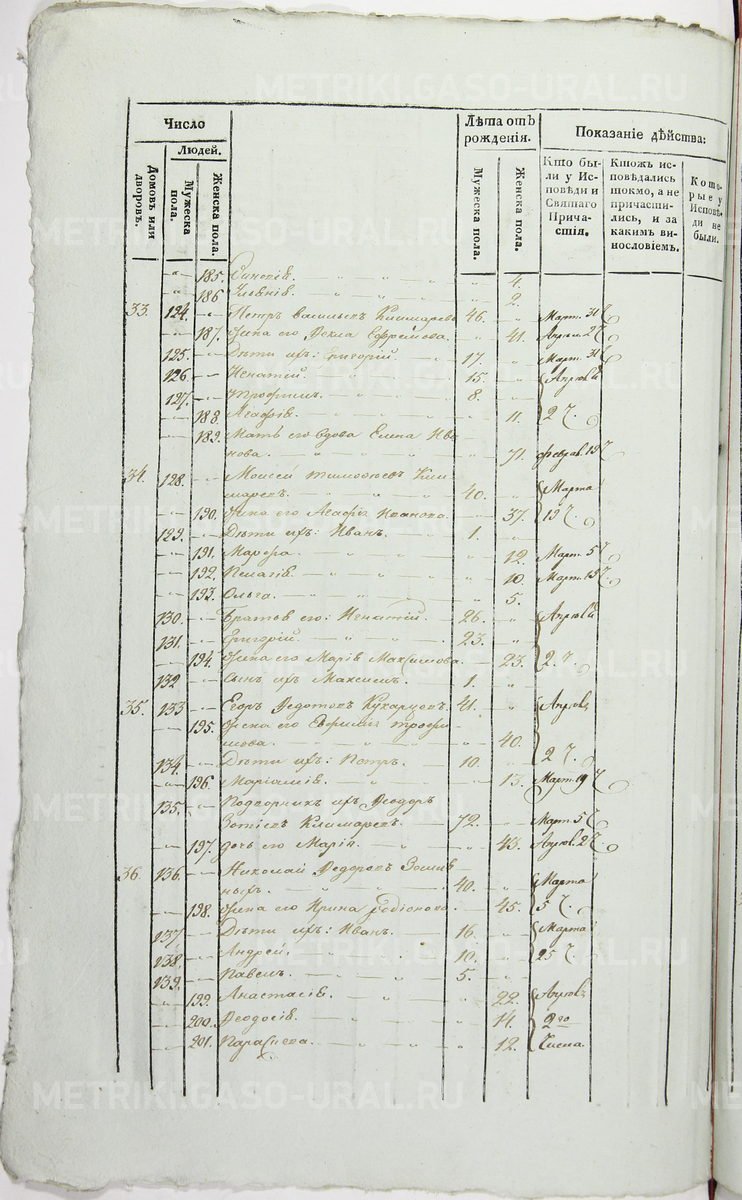 Число
Людей.
Домовъ или дворовъ.
Мужеска пола.
Женска пола.
Лѣта отъ рожденія.
Мужеска пола.
Женска пола.
Показаніе дѣйства:
Кто были у Исповѣди и Святаго Причастія.
Ктожъ исповѣдались токмо, а не причастились, и за какимъ винословіемъ.
Которые у Исповѣди не были.
185. 4.
186. 2.
33. 124. Петръ Васильевъ 46. Март. 31 ч
187. Жена его Ѳекла Ефремова. 41. Апрѣл. 2 ч
125. Дѣти ихъ: Григорій 17. Март. 31 ч
126. Игнатій. 15. Апрѣля
127. Трофимъ. 8.
188. Агафія. 11. 2 ч.
189. Мать его вдова Елена Ива
нова. 71. Феврал. 19 ч
34. 128. Моисей Тимофеевъ Кли
маревъ. 40. Марта
190. Жена его Агафія Иванова. 37. 19 ч.
129. Дѣти ихъ: Иванъ. 1.
191. Марфа. 12. Март. 5 ч
192. Пелагія. 10. Март. 19 ч
193. Ольга. 5.
130. Братья его: Игнатій. 26. Апрѣля
131. Григорій 23.
194. Жена его Марія Максимова. 23. 2. ч
132 Сынъ ихъ Максимъ. 1.
35. 133 Егоръ Ѳедотовъ Кухарцовъ. 41. Апрѣля
195. Жена его Евфимія Трофи
мова. 40.
134. Дѣти ихъ: Петръ. 10. 2 ч.
196. Маріамія. 13. Март. 19 ч
135. Подворникъ ихъ Ѳеодоръ
Зотѣевъ Климаревъ. 72. Март. 5 ч
197. дочь его Марія. 43. Апрѣл. 2 ч
36 136. Николай Ѳедоровъ
ныхъ. 40. Марта
198. Жена его Ирина Родіонова. 45. 5 ч.
137 Дѣти ихъ: Иванъ. 16. Марта
138. Андрей. 10. 25 ч.
139. Павелъ. 5.
199. Анастасія. 22. Апрѣля
200. Ѳеодосія. 14. 2го
201. Параскева. 12. Числа.
METRIKI.GASO-URAL.RU